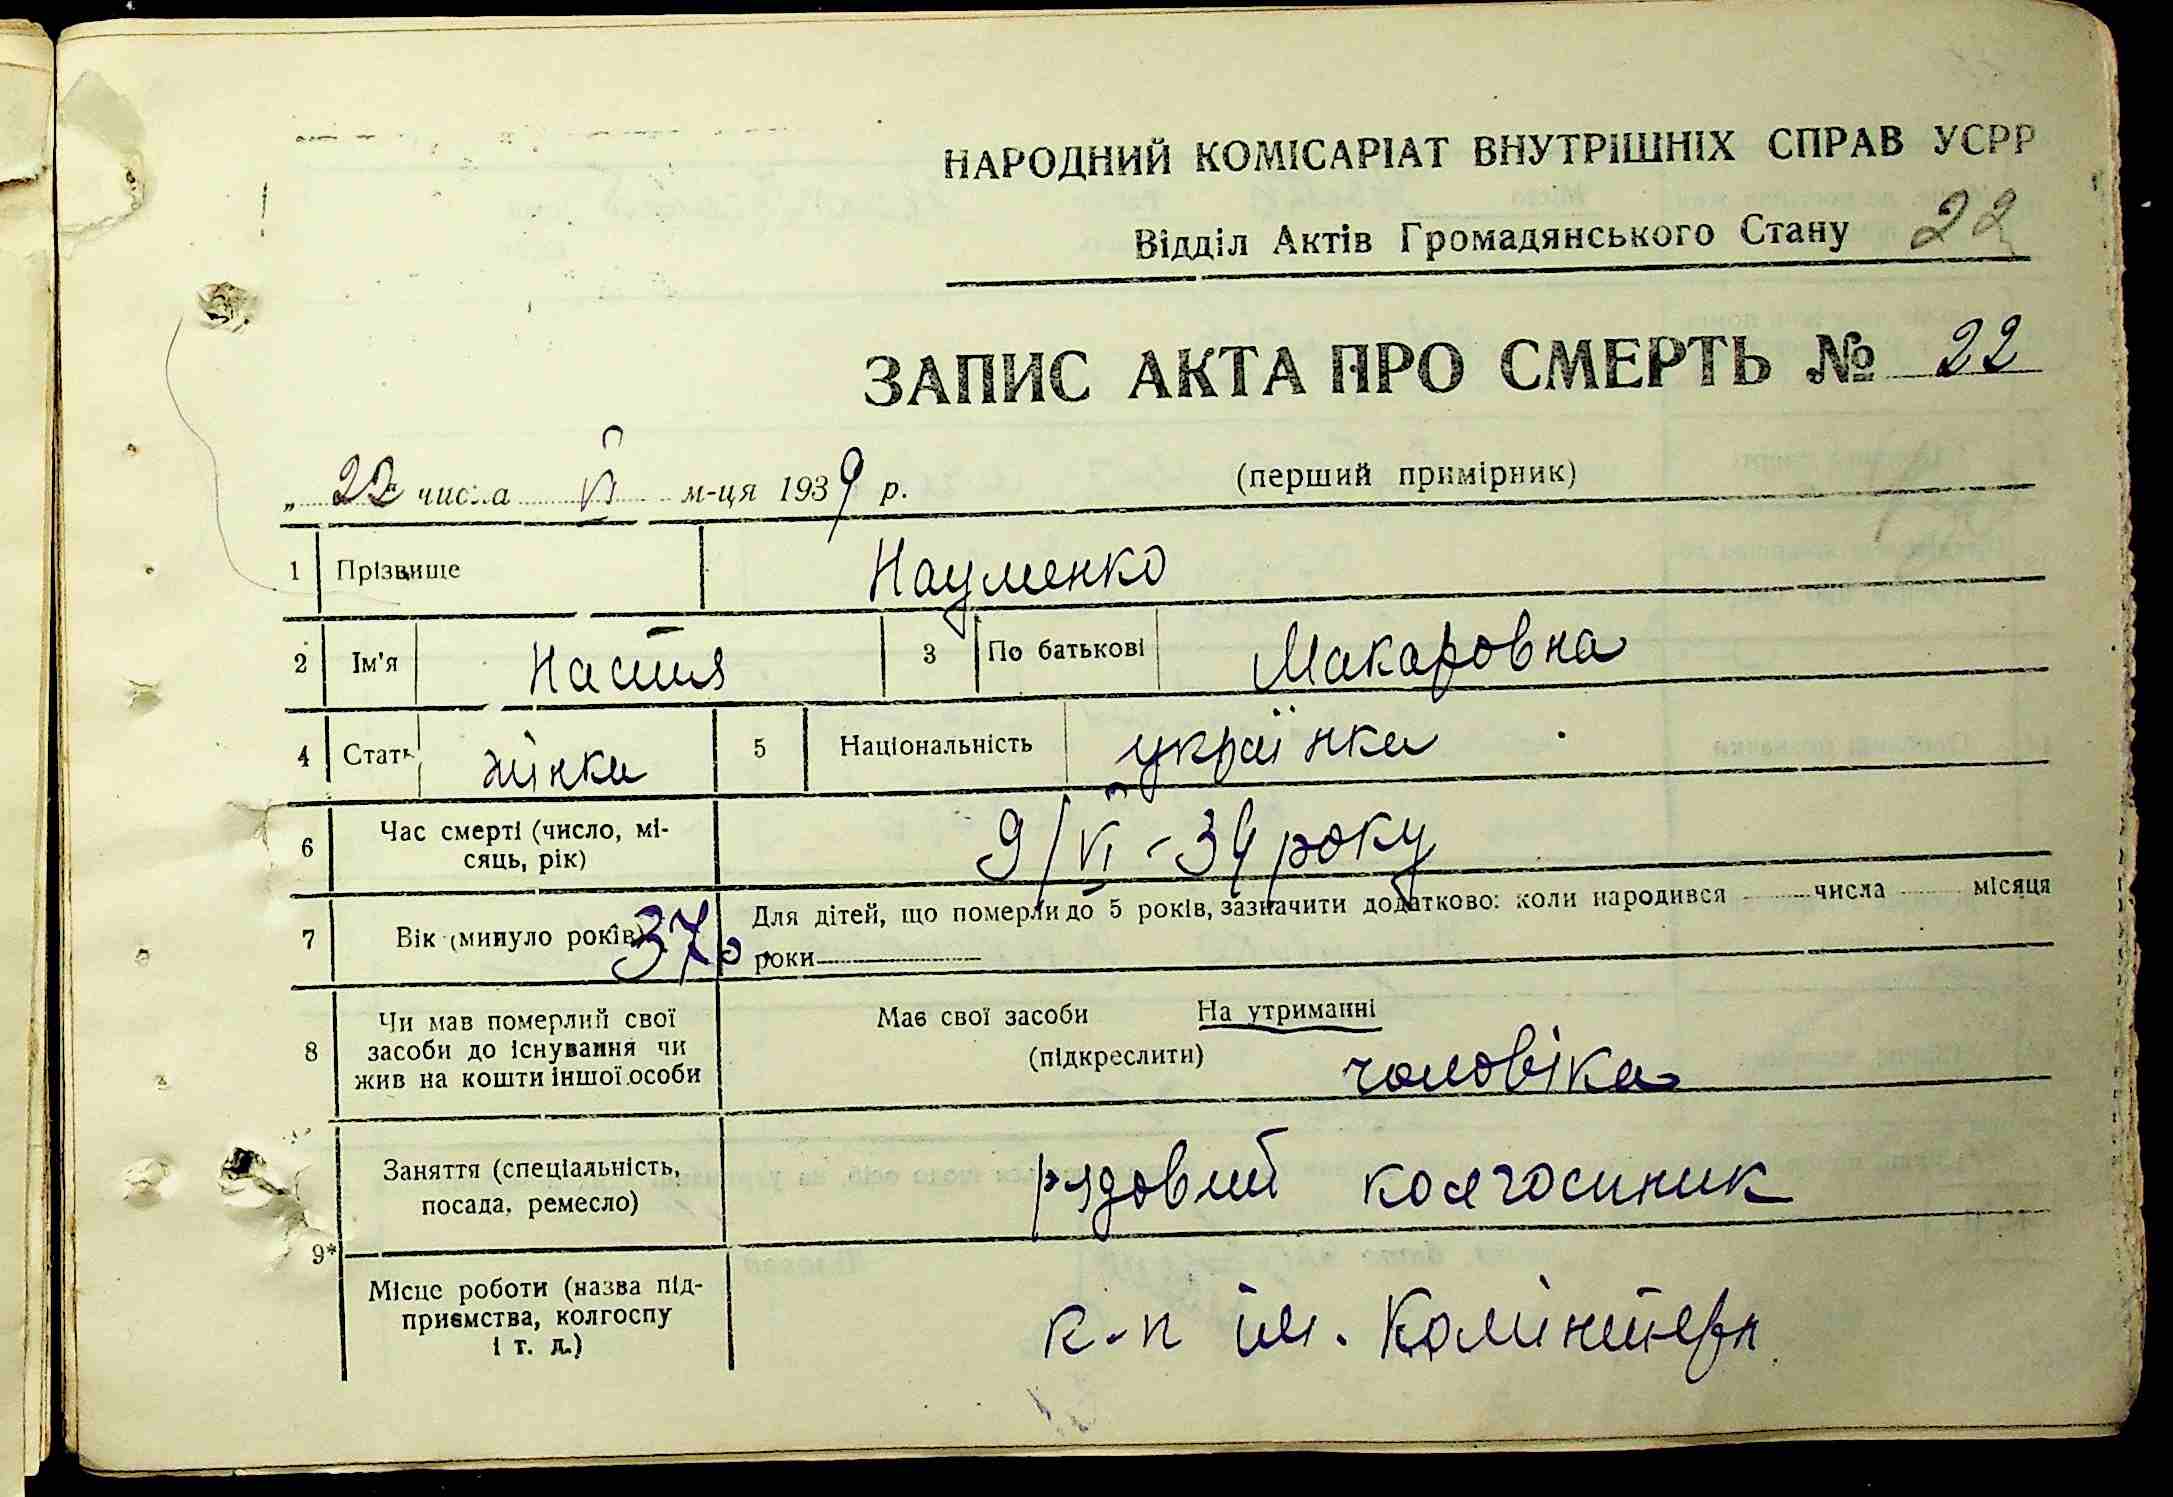 НАРОДНИЙ КОМІСАРІАТ ВНУТРІШНІХ СПРАВ УСРР
Відділ Актів Громадянського Стану 22
ЗАПИС АКТА ПРО СМЕРТЬ № 22
„ 22 " числа VI м-ця 1939 р. (перший примірник)
1 Прізвище Науменко
2 Ім'я Настя 3 По батькові Макаровна
4 Стать жінка 5 Національність українка
6 Час смерті (число, мі-
сяць, рік) 9/VI - 39 року
7 Вік (минуло років) 37 р Для дітей, що померли до 5 років, зазначити додатково: коли народився числа місяця
роки
8 Чи мав померлий свої
засоби до існування чи
жив на кошти іншої особи
Має свої засоби На утриманні
(підкреслити) чоловіка
9* Заняття (спеціальність,
посада, ремесло) рядовий колгоспник
Місце роботи (назва під-
приємства, колгоспу
і т. д.) к-п ім. Комінтерн